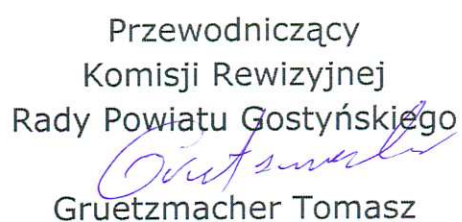 Przewodniczący
Komisji Rewizyjnej
Rady Powiatu Gostyńskiego
Gruetzmacher Tomasz